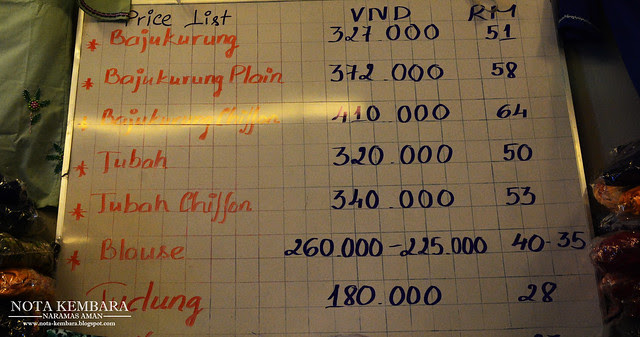 Price List VND RM
* Bajukurung 327.000 51
* Bajukurung Plain 372.000 58
* Bajukurung Chiffon 410.000 64
* Jubah 320.000 50
* Jubah Chiffon 340.000 53
* Blouse 260.000-225.000 40-35
Tudung 180.000 28
NOTA KEMBARA
NARAMAS AMAN
www.nota-kembara.blogspot.com